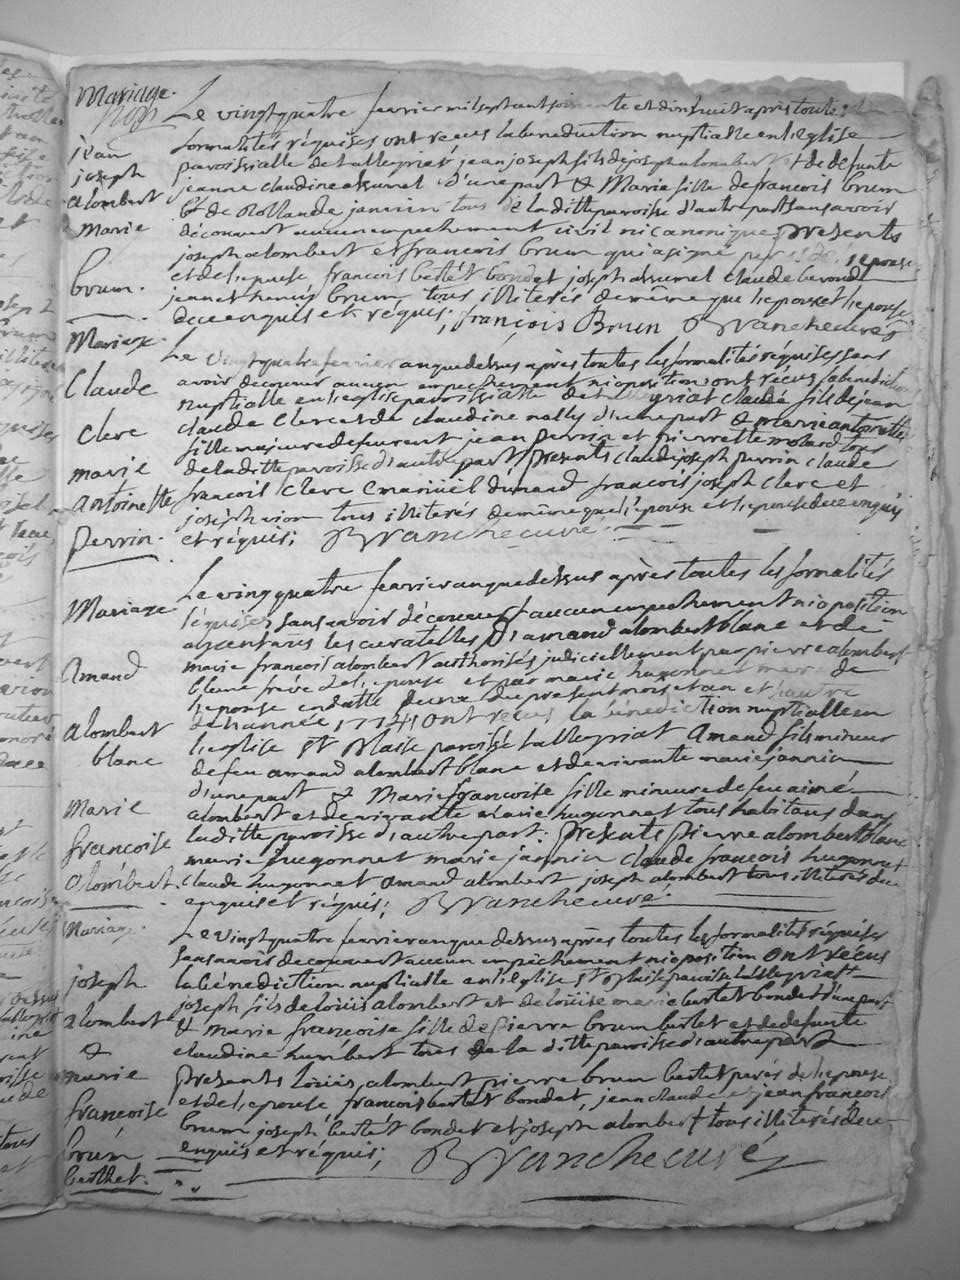 Mariage.
jean
joseph
alombert
marie
brum.
Le vingtquatre fevrier mil sept cent soixante et dix huit apres toutes
formalités réquises ont recus la benediction nuptialle en l'eglise
paroissialle de talleyriat jean joseph fils de joseph alombert et de defunte
jeanne claudine assumel d'une part & Marie fille de francois brum
& de Rollande jannin tous de la ditte paroisse d'autre part sans avoir
découvert aucun empechement civil ni canonique presents
joseph alombert et francois brum qui a signé peres de l'epouse
et de l'epouse francois bertet bondet joseph assumel claude
jean et brum, tous illiterés de même que l'epoux et l'epouse
de ce enquis et réquis; françois Brun Branche curé
Mariage.
Claude
Clerc
marie
antoinette
perrin.
Le vingtquatre fevrier an que dessus après toutes les formalités réquises sans
avoir decouvert aucun empechement ni oposition ont récus la bénédiction
nuptialle en l'eglise paroissialle de talleyriat claude fils de jean
claude Clerc et de claudine nally d'une part & marie antoinette
fille majeure de feu rent jean perrin et pierrette molard tous
de la ditte paroisse d'autre part presents claude joseph perrin claude
francois Clerc Emanuel dunand francois joseph clerc et
joseph vion tous illiterés de même que l'epouse et l'epouse de ce enquis
et réquis; Branche curé
Mariage
Amand
alombert
blanc
Marie
francoise
alombert.
Le vingquatre fevrier an que dessus après toutes les formalités
réquises sans avoir découvert aucun empechement ni oposition
les curatelles d'amand alombert blanc et de
marie francois alombert authorisés judiciellement par pierre alombert
blanc frère de l'epouse et par marie hugonnet mere de
l'epouse en datte du present mois et an et l'autre
de l'année 1774, ont recus la bénédiction nuptialle en
l'eglise St Blaise paroisse talleyriat Amand fils mineur
de feu amand alombert blanc et de vivante marie jannin
d'une part & Marie francoise fille mineure de feu aimé
alombert et de vivante marie hugonnet tous habitans dans
la ditte paroisse d'autre part. presents pierre alombert blanc
marie hugonnet marie jannin claude francois hugonnet
claude hugonnet amand alombert joseph alombert tous illiterés de ce
enquis et réquis; Branche curé.
Mariage.
joseph
alombert
&
marie
françoise
brum
berthet.
Le vingtquatre fevrier an que dessus après toutes les formalités réquises
sans avoir decouvert aucun empêchement ni oposition ont récus
la bénédiction nuptialle en l'eglise St Blaise paroisse talleyriat
joseph fils de loüis alombert et de loüise marie bertet bondet d'une part
& marie françoise fille de pierre brum bertet et de defunte
claudine humbert tous de la ditte paroisse d'autre part
presents loüis alombert pierre brum bertet perés de l'epouse
et de l'epouse, francois bertet bondet, jean claude et jean francois
brum joseph bertét bondet et joseph alombert tous illiterés de ce
enquis et réquis; Branche curé